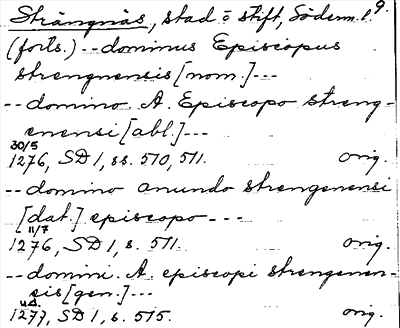 Strängnäs, stad o stift, Söderm. l. 9.
(forts.) -- dominus Episcopus
strengnensis [nom.] ---
-- domino. A. Episcopo streng-
enensi [abl.] ---
30/5
1276, SD 1, ss. 510, 511. orig.
-- domino anundo strengenensi
[dat.] episcopo ---
11/7
1276, SD 1, s. 511. orig.
-- domini. A. episcopi strengenen-
sis [gen.] ---
u.d.
1277, SD 1, s. 515. orig.